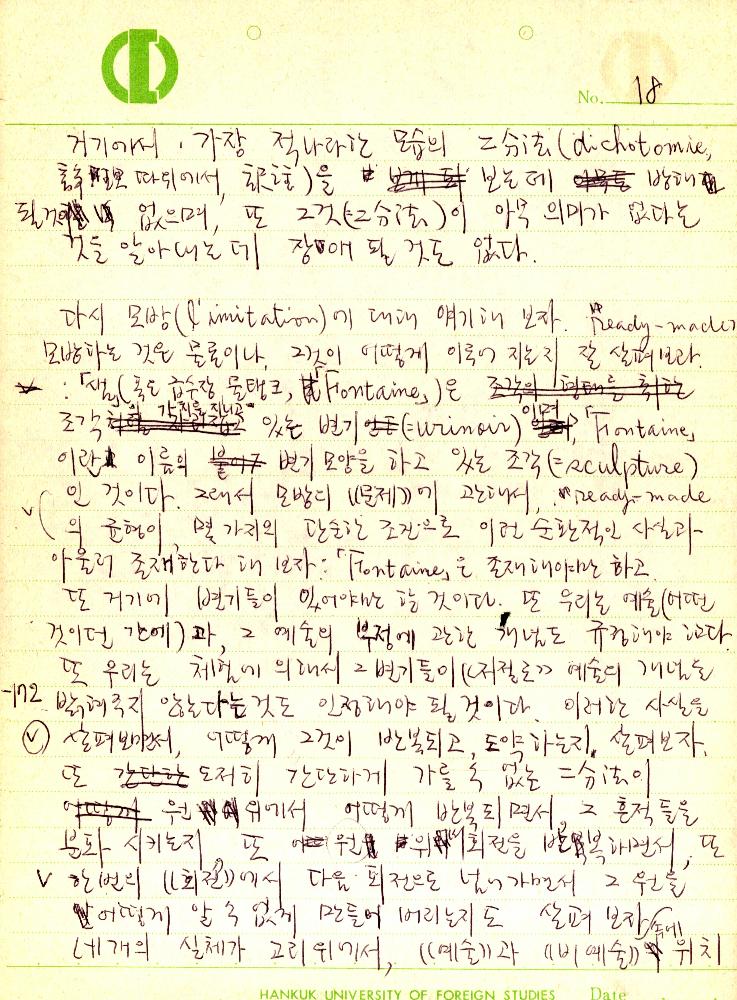 No. 18
거기에서, 가장 적나라한 모습의 二分法(dichotomie,
따위에서, )을 보는데 방해
될 것 없으며, 또 그것(=二分法)이 아무 의미가 없다는
것을 알아내는데 장애 될 것도 없다.
다시 모방(l'imitation)에 대해 얘기해 보자. "ready-made"
모방하는 것은 물론이나, 그것이 어떻게 이루어 지는지 잘 살펴보라.
:「샘」(혹은 급수장, 물탱크, 「Fontaine」)은 조각의 형태를 취한
조각 가치를 지니고 있는 변기(=urinoir)이며, 「Fontaine」
이란 이름의 변기 모양을 하고 있는 조각(=sculpture)
인 것이다. 그래서 모방의 ((문제))에 관해서, "ready-made"
의 균형이, 몇 가지의 단순한 조건으로 이런 순환적인 사실과
아울러 존재한다 해 보자:「Fontaine」은 존재해야만 하고
또 거기에 변기들이 있어야만 할 것이다. 또 우리는 예술(어떤
것이던 간에)과, 그 예술의 부정에 관한 개념도 규정해야 한다.
또 우리는 체험에 의해서 그 변기들이 ((저절로)) 예술의 개념을
-172 밝혀주지 않는다는 것도 인정해야 될 것이다. 이러한 사실을
살펴보면서, 어떻게 그것이 반복되고, 도약하는지, 살펴보자.
또 간단한 도저히 간단하게 가를 수 없는 二分法이
어떻게 원 위에서 어떻게 반복되면서, 그 흔적들을
분화시키는지 또 원 위 회전을 반복하면서, 또
한번의 ((회전))에서 다음 회전으로 넘어가면서 그 원을
어떻게 알 수 없게 만들어 버리는지도 살펴 보자.
네개의 실체가 고리 위에서, ((예술))과 ((비예술)) 속에 위치
HANKUK UNIVERSITY OF FOREIGN STUDIES Date . .